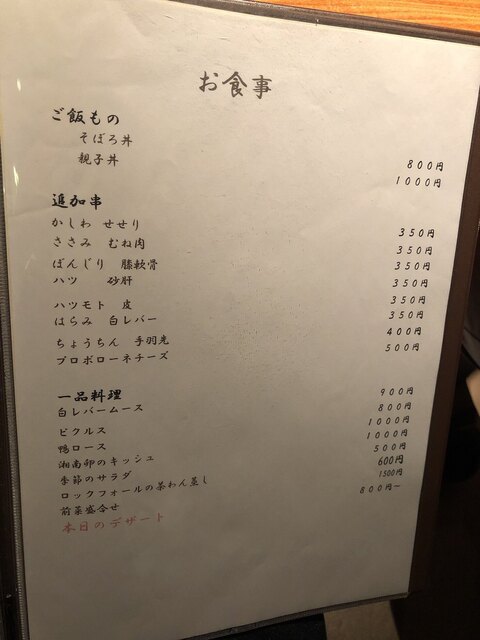 お食事
ご飯もの
そぼろ丼 800円
親子丼 1000円
追加串
かしわ せせり 350円
ささみ むね肉 350円
ぼんじり 膝軟骨 350円
ハツ 砂肝 350円
ハツモト 皮 350円
はらみ 白レバー 350円
ちょうちん 手羽先 400円
プロボローネチーズ 500円
一品料理
白レバームース 900円
ピクルス 800円
鴨ロース 1000円
湘南卵のキッシュ 1000円
季節のサラダ 500円
ロックフォールの茶わん蒸し 600円
前菜盛合せ 1500円
本日のデザート 800円~